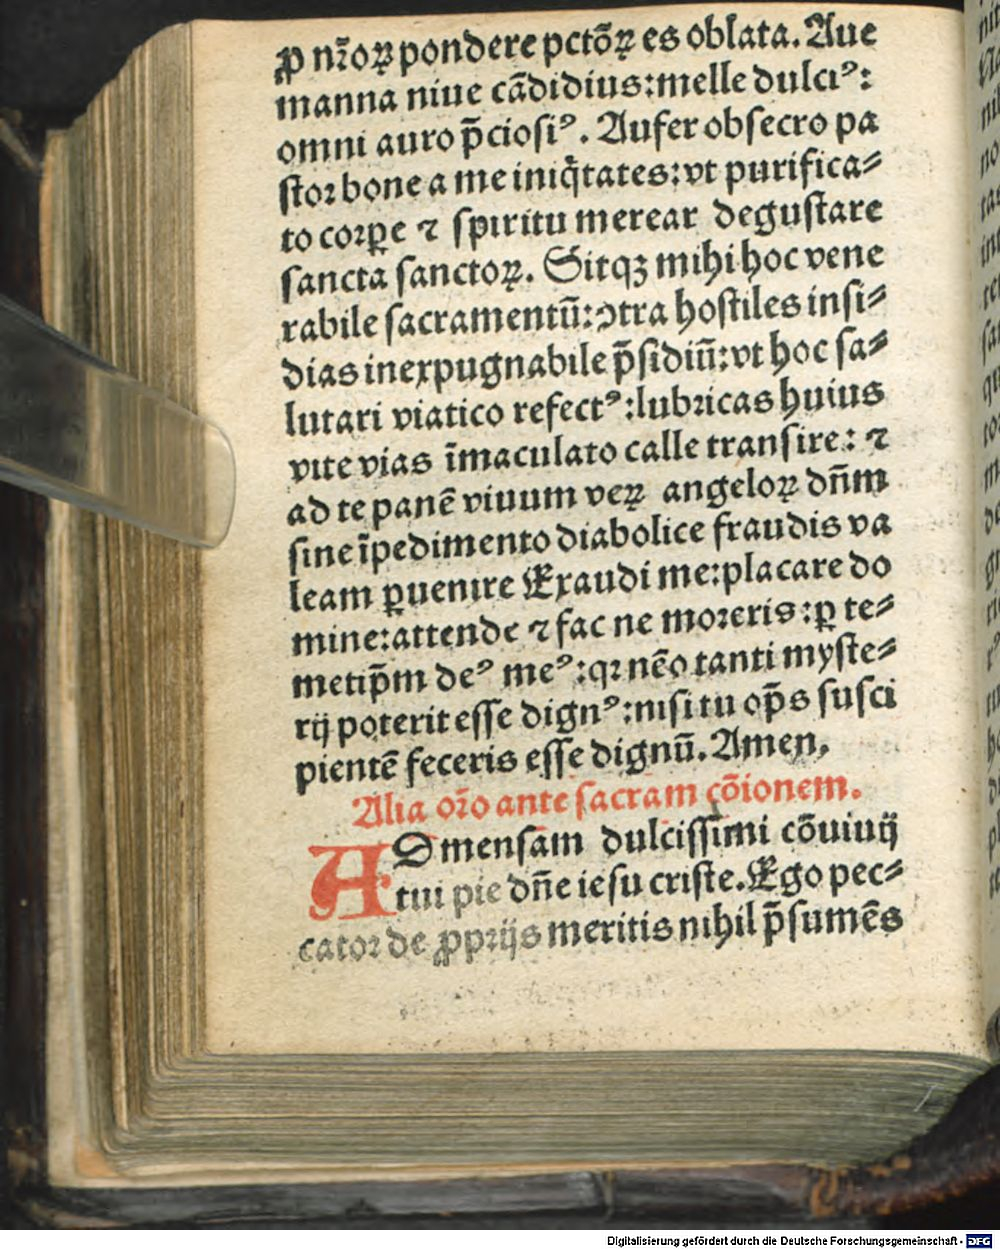 ꝓ nr̄oꝝ pondere pctōꝝ es oblata. Aue
manna niue cādidius: melle dulciꝰ:
omni auro p̄ciosiꝰ. Aufer obsecro pa
stor bone a me iniq̄tates: vt purifica⸗
to corꝑe ⁊ spiritu merear degustare
sancta sanctoꝝ. Sitqꝫ mihi hoc vene
rabile sacramentū: ↄtra hostiles insi⸗
dias inexpugnabile p̄sidiū: vt hoc sa⸗
lutari viatico refectꝰ: lubricas huius
vite vias īmaculato calle transire: ⁊
ad te panē viuum veꝝ angeloꝝ dn̄m
sine īpedimento diabolice fraudis va
leam ꝑuenire Exaudi me: placare do
mine: attende ⁊ fac ne moreris: ꝑ te⸗
metip̄m deꝰ meꝰ: qꝛ nēo tanti myste⸗
rij poterit esse dignꝰ: nisi tu op̄s susci
pientē feceris esse dignū. Amen.
Alia or̄o ante sacram cōionem.
AD mensam dulcissimi cōuiuij
tui pie dn̄e iesu criste. Ego pec⸗
cator de ꝓprijs meritis nihil p̄sumēs
Digitalisierung gefördert durch die Deutsche Forschungsgemeinschaft - DFG